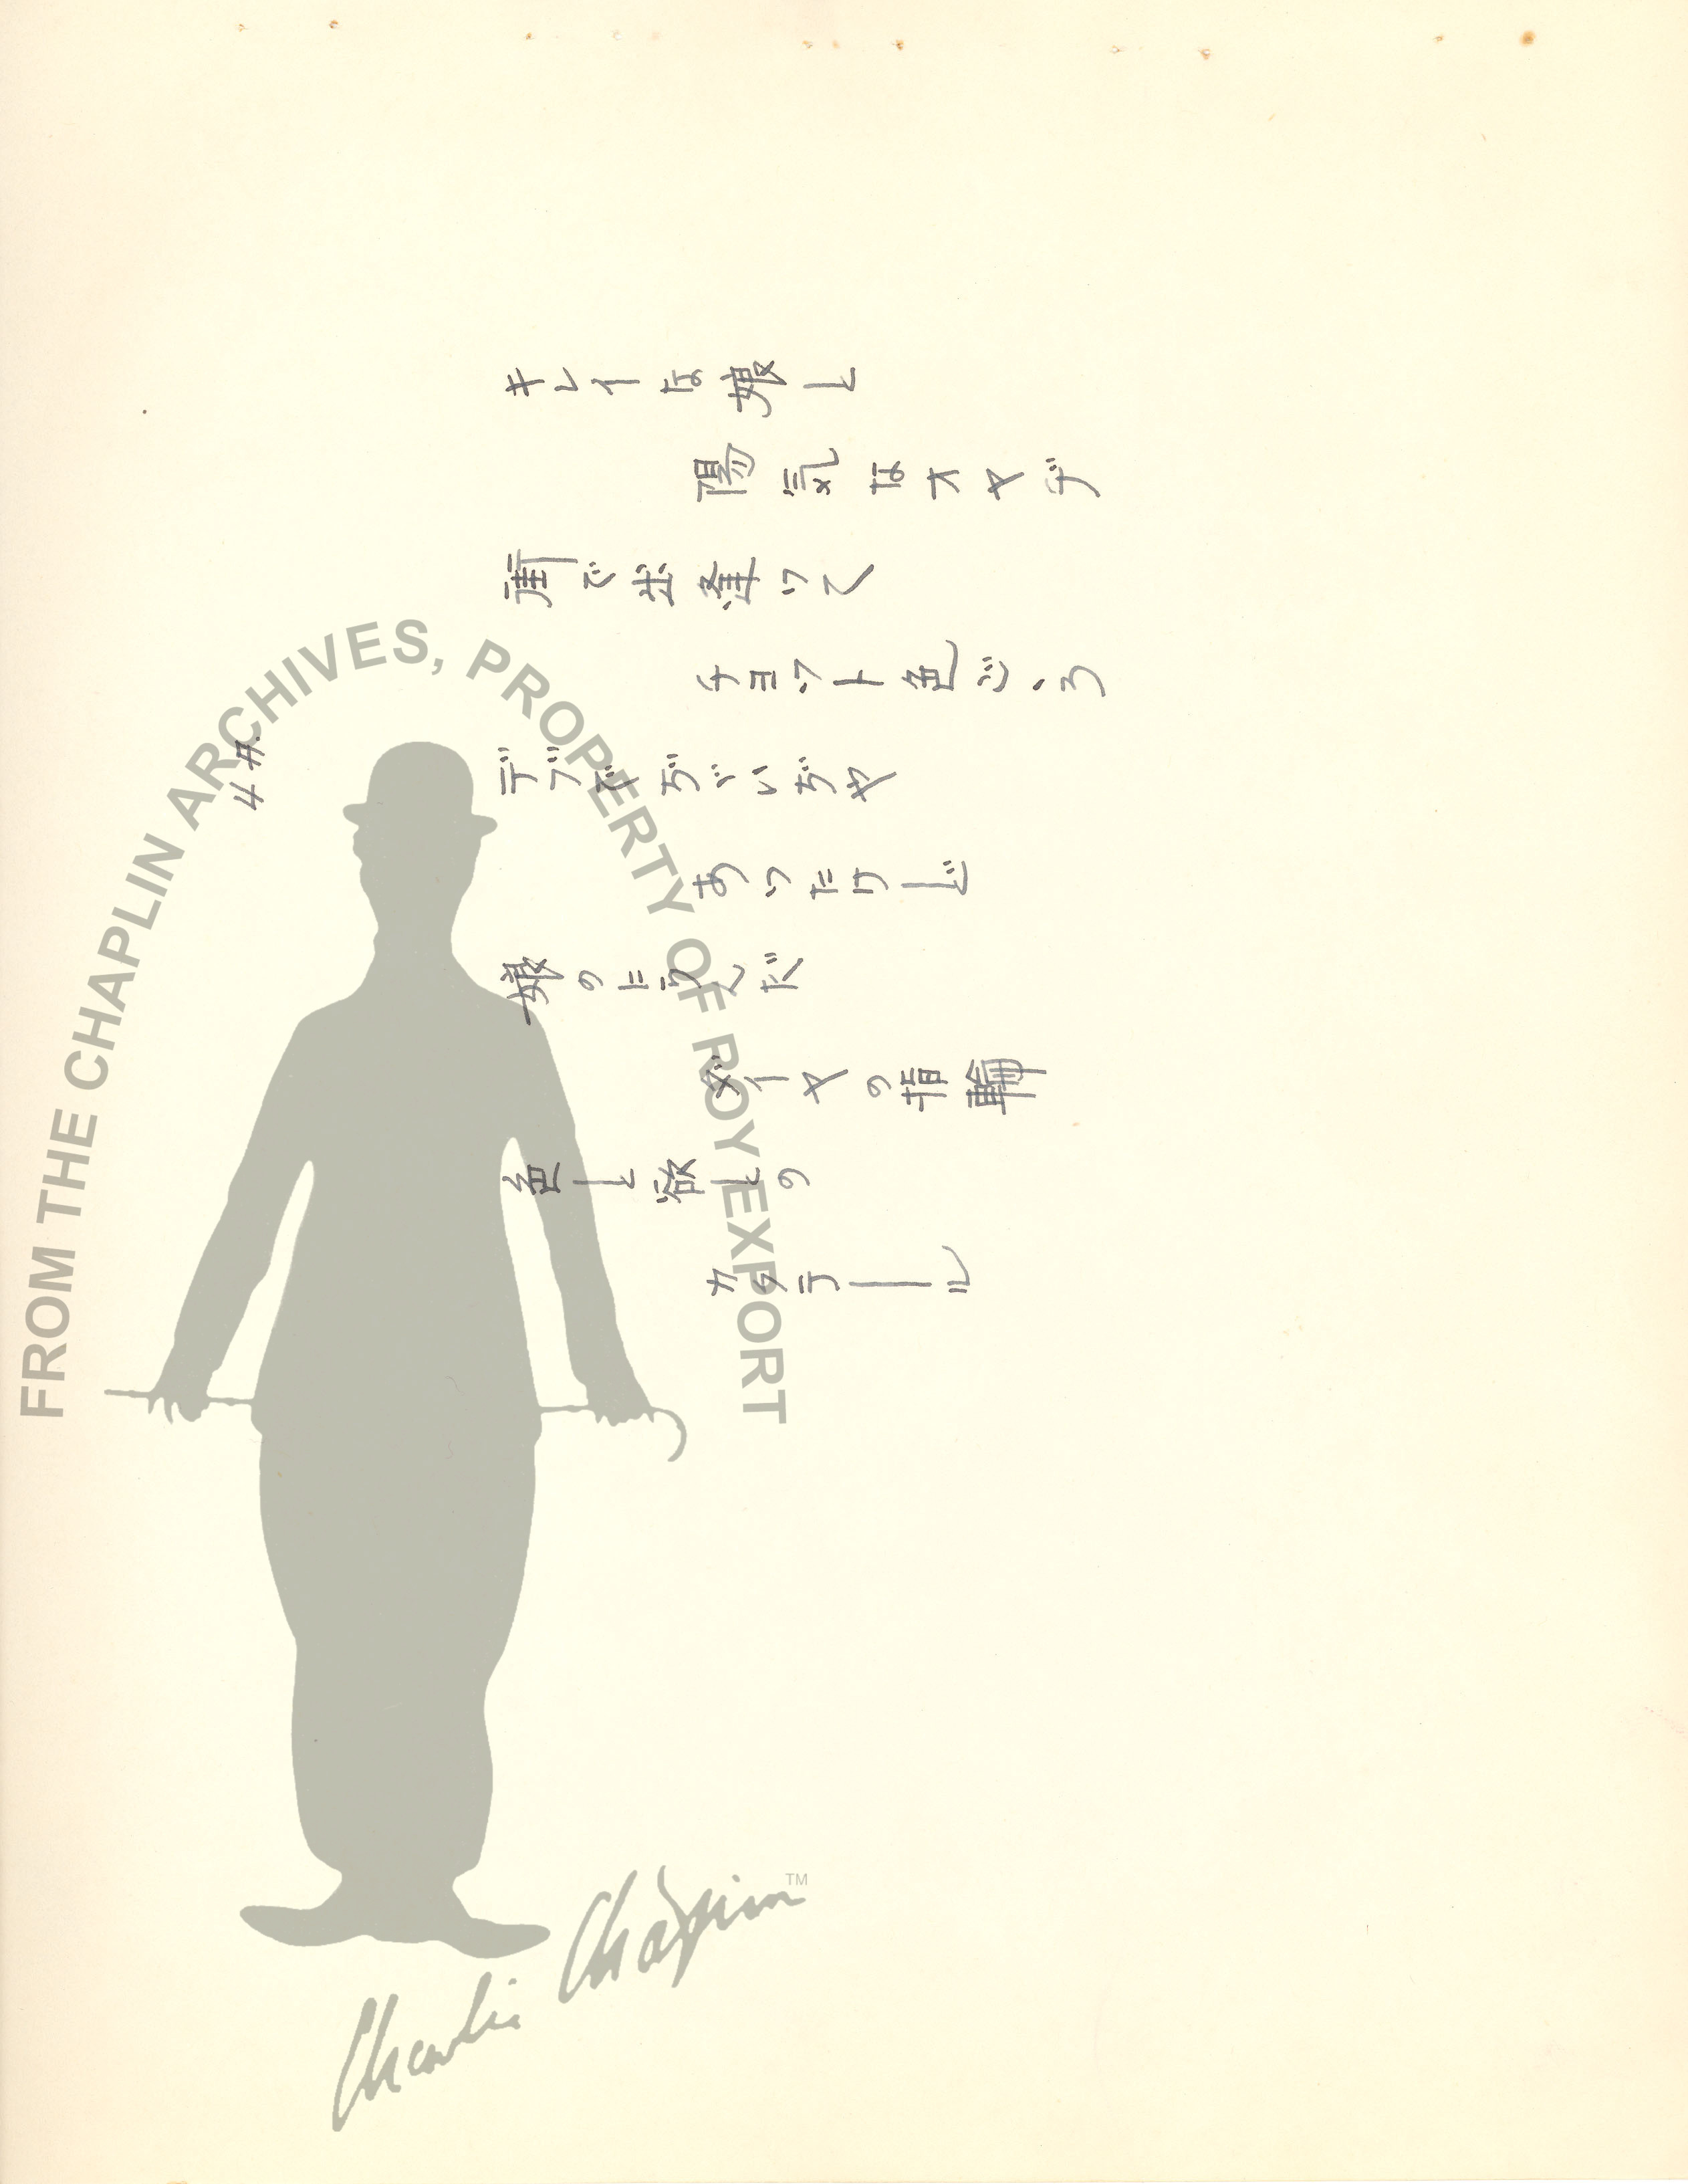 4 A.
キレイな娘と
陽気なオヤヂ
街で出逢つて
チョツト色ごゝろ
デブでぢゞいぢや
あつたけど
娘のにらんだ
ダイヤの指輪
色と欲との
カクテール
FROM THE CHAPLIN ARCHIVES, PROPERTY OF ROY EXPORT
Charlie Chaplin TM